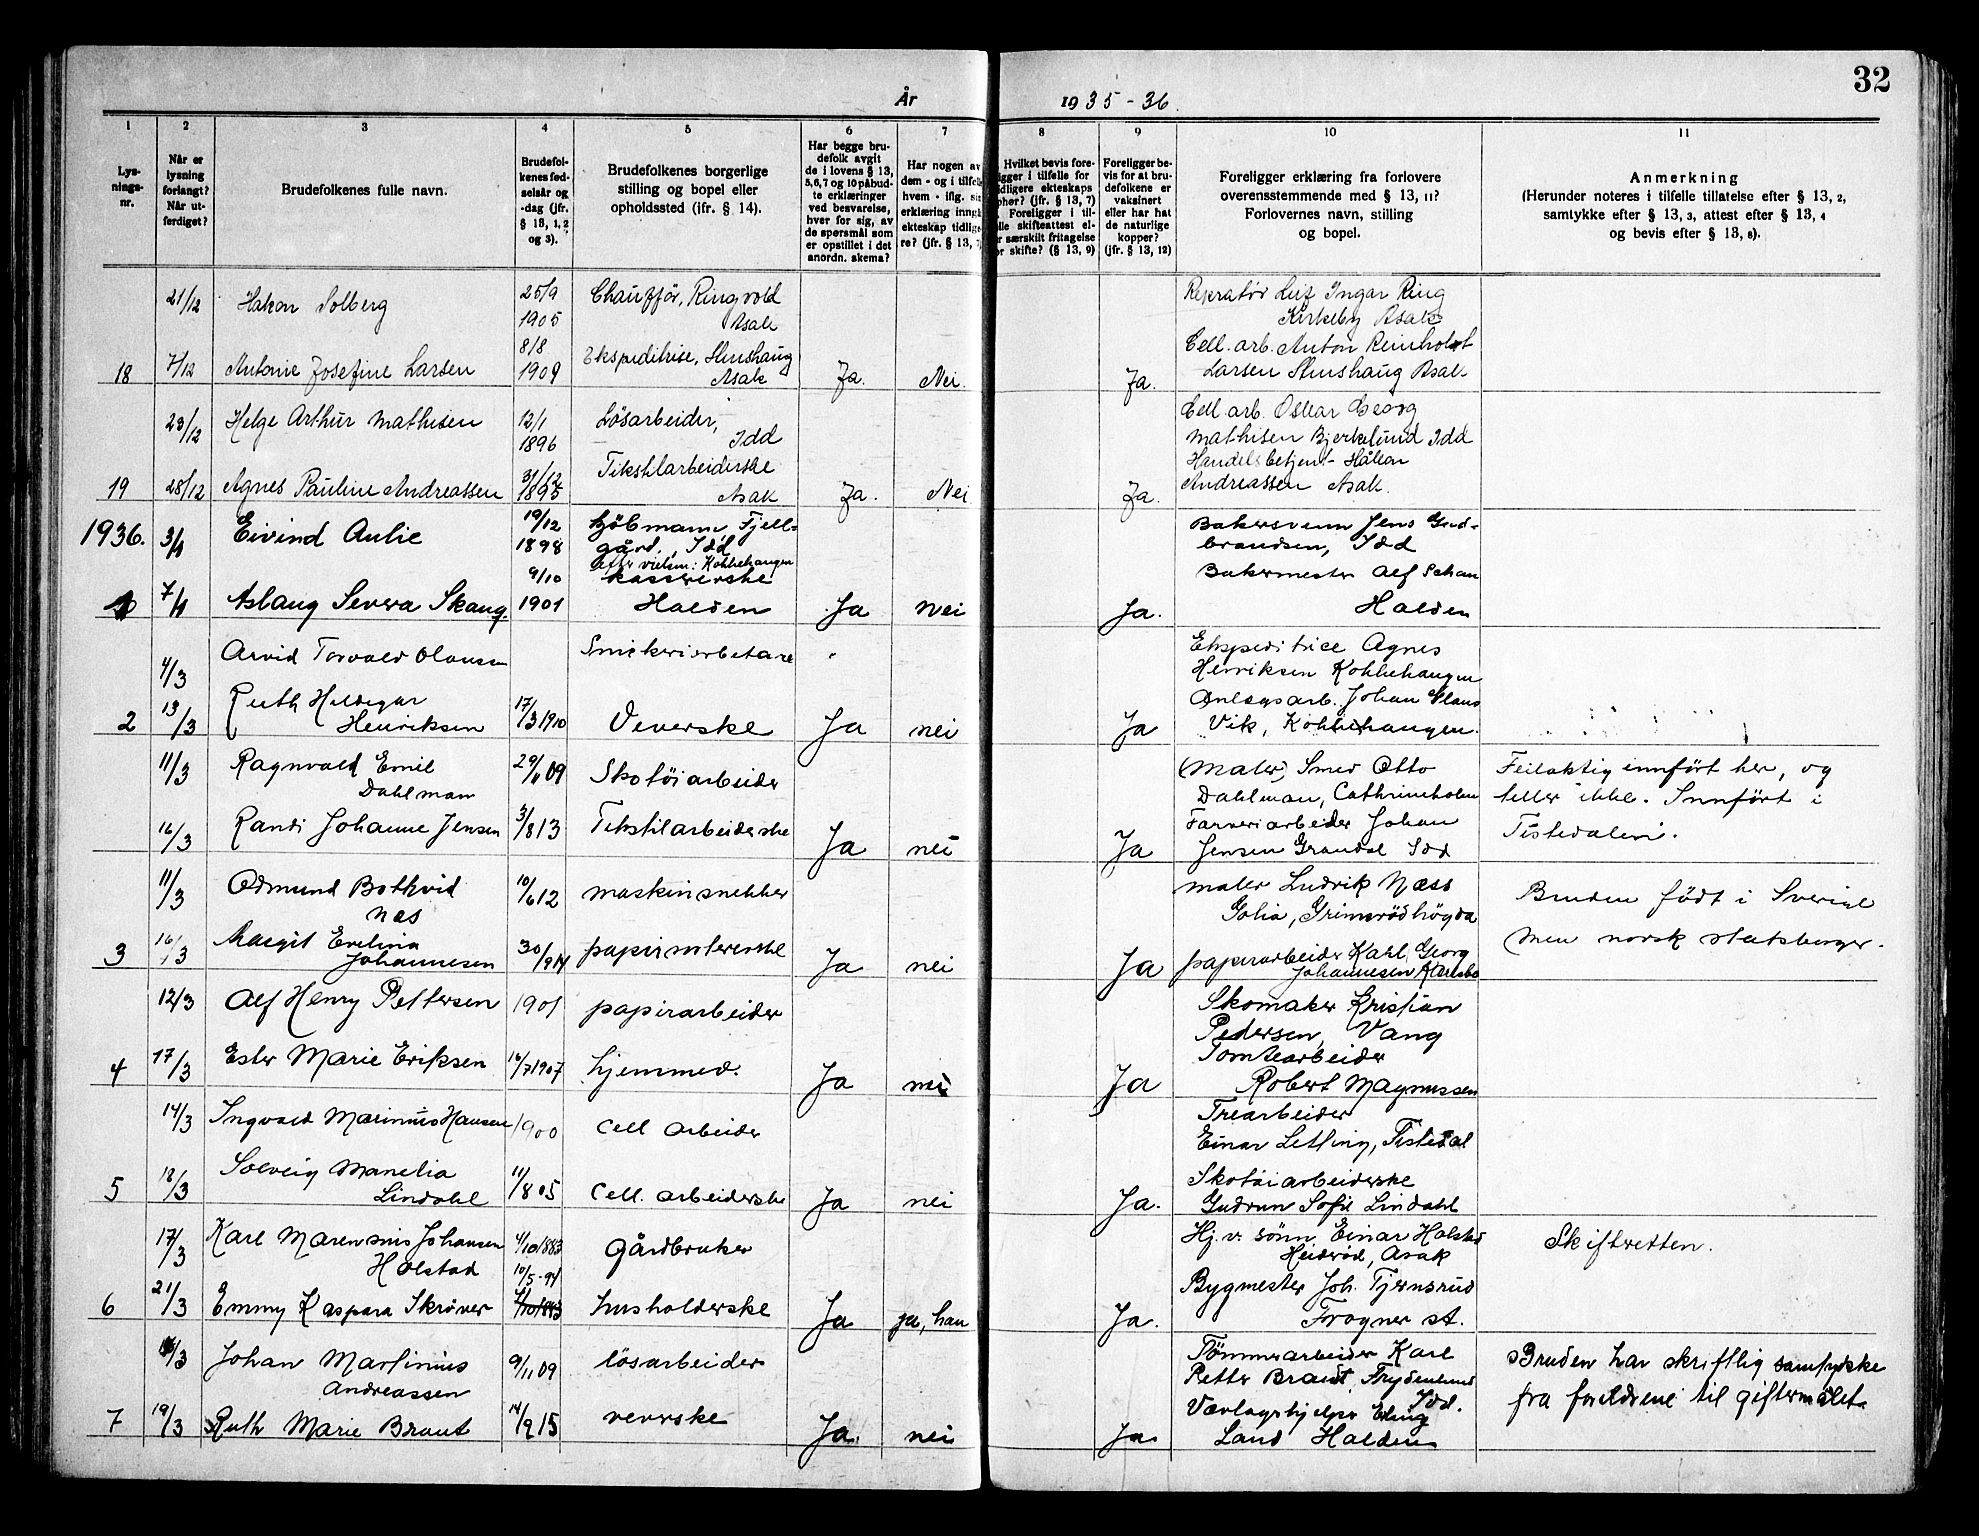 32
År 1935-36.
1 2 3 4 5 6 7 8 9 10 11
Lys-
nings-
nr.
Når er
lysning
forlangt?
Når ut-
ferdiget?
Brudefolkenes fulle navn.
Brudefol-
kenes fød-
selsår og
-dag (jfr.
§ 13, 1, 2
og 3).
Brudefolkenes borgerlige
stilling og bopel eller
opholdssted (ifr. § 14).
Har begge bru-
defolk avgit
de i lovens § 13,
5,6,7 og 10 påbud-
te erklæringer
ved besvarelse,
hver for sig, av
de spørsmål som
er opstillet i det
anordn. skema?
Har nogen av
dem - og i tilfelle
hvem - iflg. sin
erklæring inngå
ekteskap tidlige-
re? (jfr. § 13, 7
Hvilket bevis fore-
igger i tilfelle for
idligere ekteskaps
phør? (jfr. § 13, 7)
Foreligger i til-
lle skifteattest el-
r særskilt fritagelse
or skifte? (§ 13, 9)
Foreligger be-
vis for at bru-
defolkene er
vaksinert
eller har hat
de naturlige
kopper?
(jfr. § 13, 12)
Foreligger erklæring fra forlovere
overensstemmende med § 13, 11?
Forlovernes navn, stilling
og bopel.
Anmerkning
(Herunder noteres i tilfelle tillatelse efter § 13, 2,
samtykke efter § 13, 3, attest efter § 13, 4
og bevis efter § 13, 8).
21/12 Hakon Solberg 25/9 1905 Chauffør, Ringvold Asak
18 7/12 Antonie Josefine Larsen 8/8 1909 Ekspeditrise, Asak Ja. Nei. Ja.
Leif Ingar Ring
Kirkeby Asak
Cell. arb. Anton Reinholdt
Larsen Asak
23/12 Helge Arthur Mathisen 12/1 1896 Løsarbeider, Idd
19 28/12 Agnes Pauline Andreassen 31/12 1895 Tekstilarbeiderske Asak Ja. Nei Ja.
Cell. arb. Oskar Georg
Mathisen Bjerkelund Idd
Handelsbetjent Håkon
Andreassen Asak.
1936. 3/1 Eivind Aulie 19/12 1898 kjöbmann, Fjell-
gård, Idd
Efter vielsen: Kobbehaugen
1 7/1 Aslaug Skaug. 9/10 1901 kassererske
Halden Ja nei Ja.
Bakersvenn Jens Gud-
brandsen, Idd
Bakermester Alf Schau
Halden
4/3 Arvid Torvald Olausen
2 13/3 Ruth Hildegar
Henriksen 17/3 1910 Veverske Ja nei Ja
Ekspeditrice Agnes
Henriksen Kobbehaugen
Anlegsarb. Johan Claus
Vik, Kobbehaugen.
11/3 Ragnvald Emil
Dahlman 29/11 09 Skotöiarbeider
16/3 Randi Johanne Jensen 3/8 13 Tekstilarbeiderske Ja nei Ja
(Maler) Smed Otto
Dahlman, Cathrineholm
Farveriarbeider Johan
Jensen Grandal Idd
Feilaktig innført her, og
teller ikke. Innført i
Tistedalen.
11/3 Odmund Bothvid
Næs 10/6 12 maskinsnekker
3 16/3 Margit Evelina
Johannesen 30/9 14 Ja nei Ja
maler Ludvik Næss
Golia, Grimsrödhögda
papirarbeider Karl Georg
Johannesen
Bruden födt i Sverige
men norsk statsborger.
12/3 Alf Henry Pettersen 1901 papirarbeider
4 17/3 Ester Marie Eriksen 16/7 1907 hjemmev. Ja nei Ja
Skomaker Kristian
Pedersen, Vang
Tomtearbeider
Robert Magnussen
14/3 Ingvald Marinius Hansen 1900 Cell arbeider
5 18/3 Solveig Manelia
Lindahl 11/8 05 Cell. arbeiderske Ja nei Ja.
Trearbeider
Einar Letting, Tistedal
Skotöiarbeiderske
Gudrun Sofie Lindahl
17/3 Karl Marensius Johansen
Holstad 4/10 1883 gårdbruker
6 21/3 Emmy Kaspara Skrøver 10/5-94 4/10 1883 husholderske Ja ja, han Ja.
Hj. v. sönn Einar Holstad
Heiröd, Asak
Bygmester Joh. Tjernsrud
Frogner st.
Skifteretten.
16/3 Johan Martinius
Andreassen 9/11 09 lösarbeider
7 19/3 Ruth Marie Braut 14/9 15 veverske Ja. nei Ja
Tömmerarbeider Karl
Petter Braut, Frydenlund
Idd.
Værlagshjelper Erling
Lund Halden
Bruden har skriftlig samtykke
fra foreldrene til giftermålet.